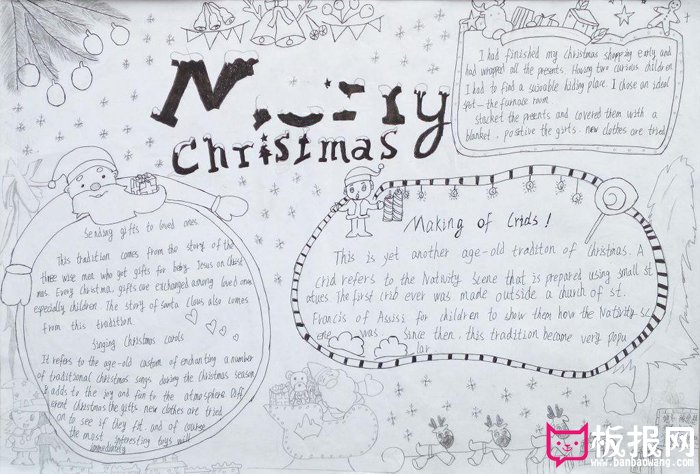 Merry
Christmas
I had finished my Christmas shopping early and
had wrapped all the presents. Having two curious children
I had to find a suicable hiding place. I chose an ideal
spst — the furnace room
stacket the preents and covered them with a
blanket, positive the girts. new clothes are tried
Sending gifts to loved ones.
This tradition comes from the story of the
three wise men who got gifts for baby Jesus on Christ
mas. Every Christma, gifts are exchanged among loved ones
especially children. The story of santa claus also comes
from this tradition.
Singing Christmas carols
It refers to the age-old custom of enchanting a number
of traditional christmas songs during the Christmas season
& adds to the joy and fun to the atmosphere. Diff
erent Christmas the gifts new clothes are tried
on to see if they fit. and of course
the most interesting toys will
immediately
Making of Crids!
This is yet another age-old traditon of Christmas. A
crid refers to the Nativity Scene that is prepared using small st
atues. The first crib ever was made outside a church of st.
Francis of Assisi for children to show them how the Nativity sc
ene was. Since then, this tradition became very popu
lar
板报网
www.banbaowang.com